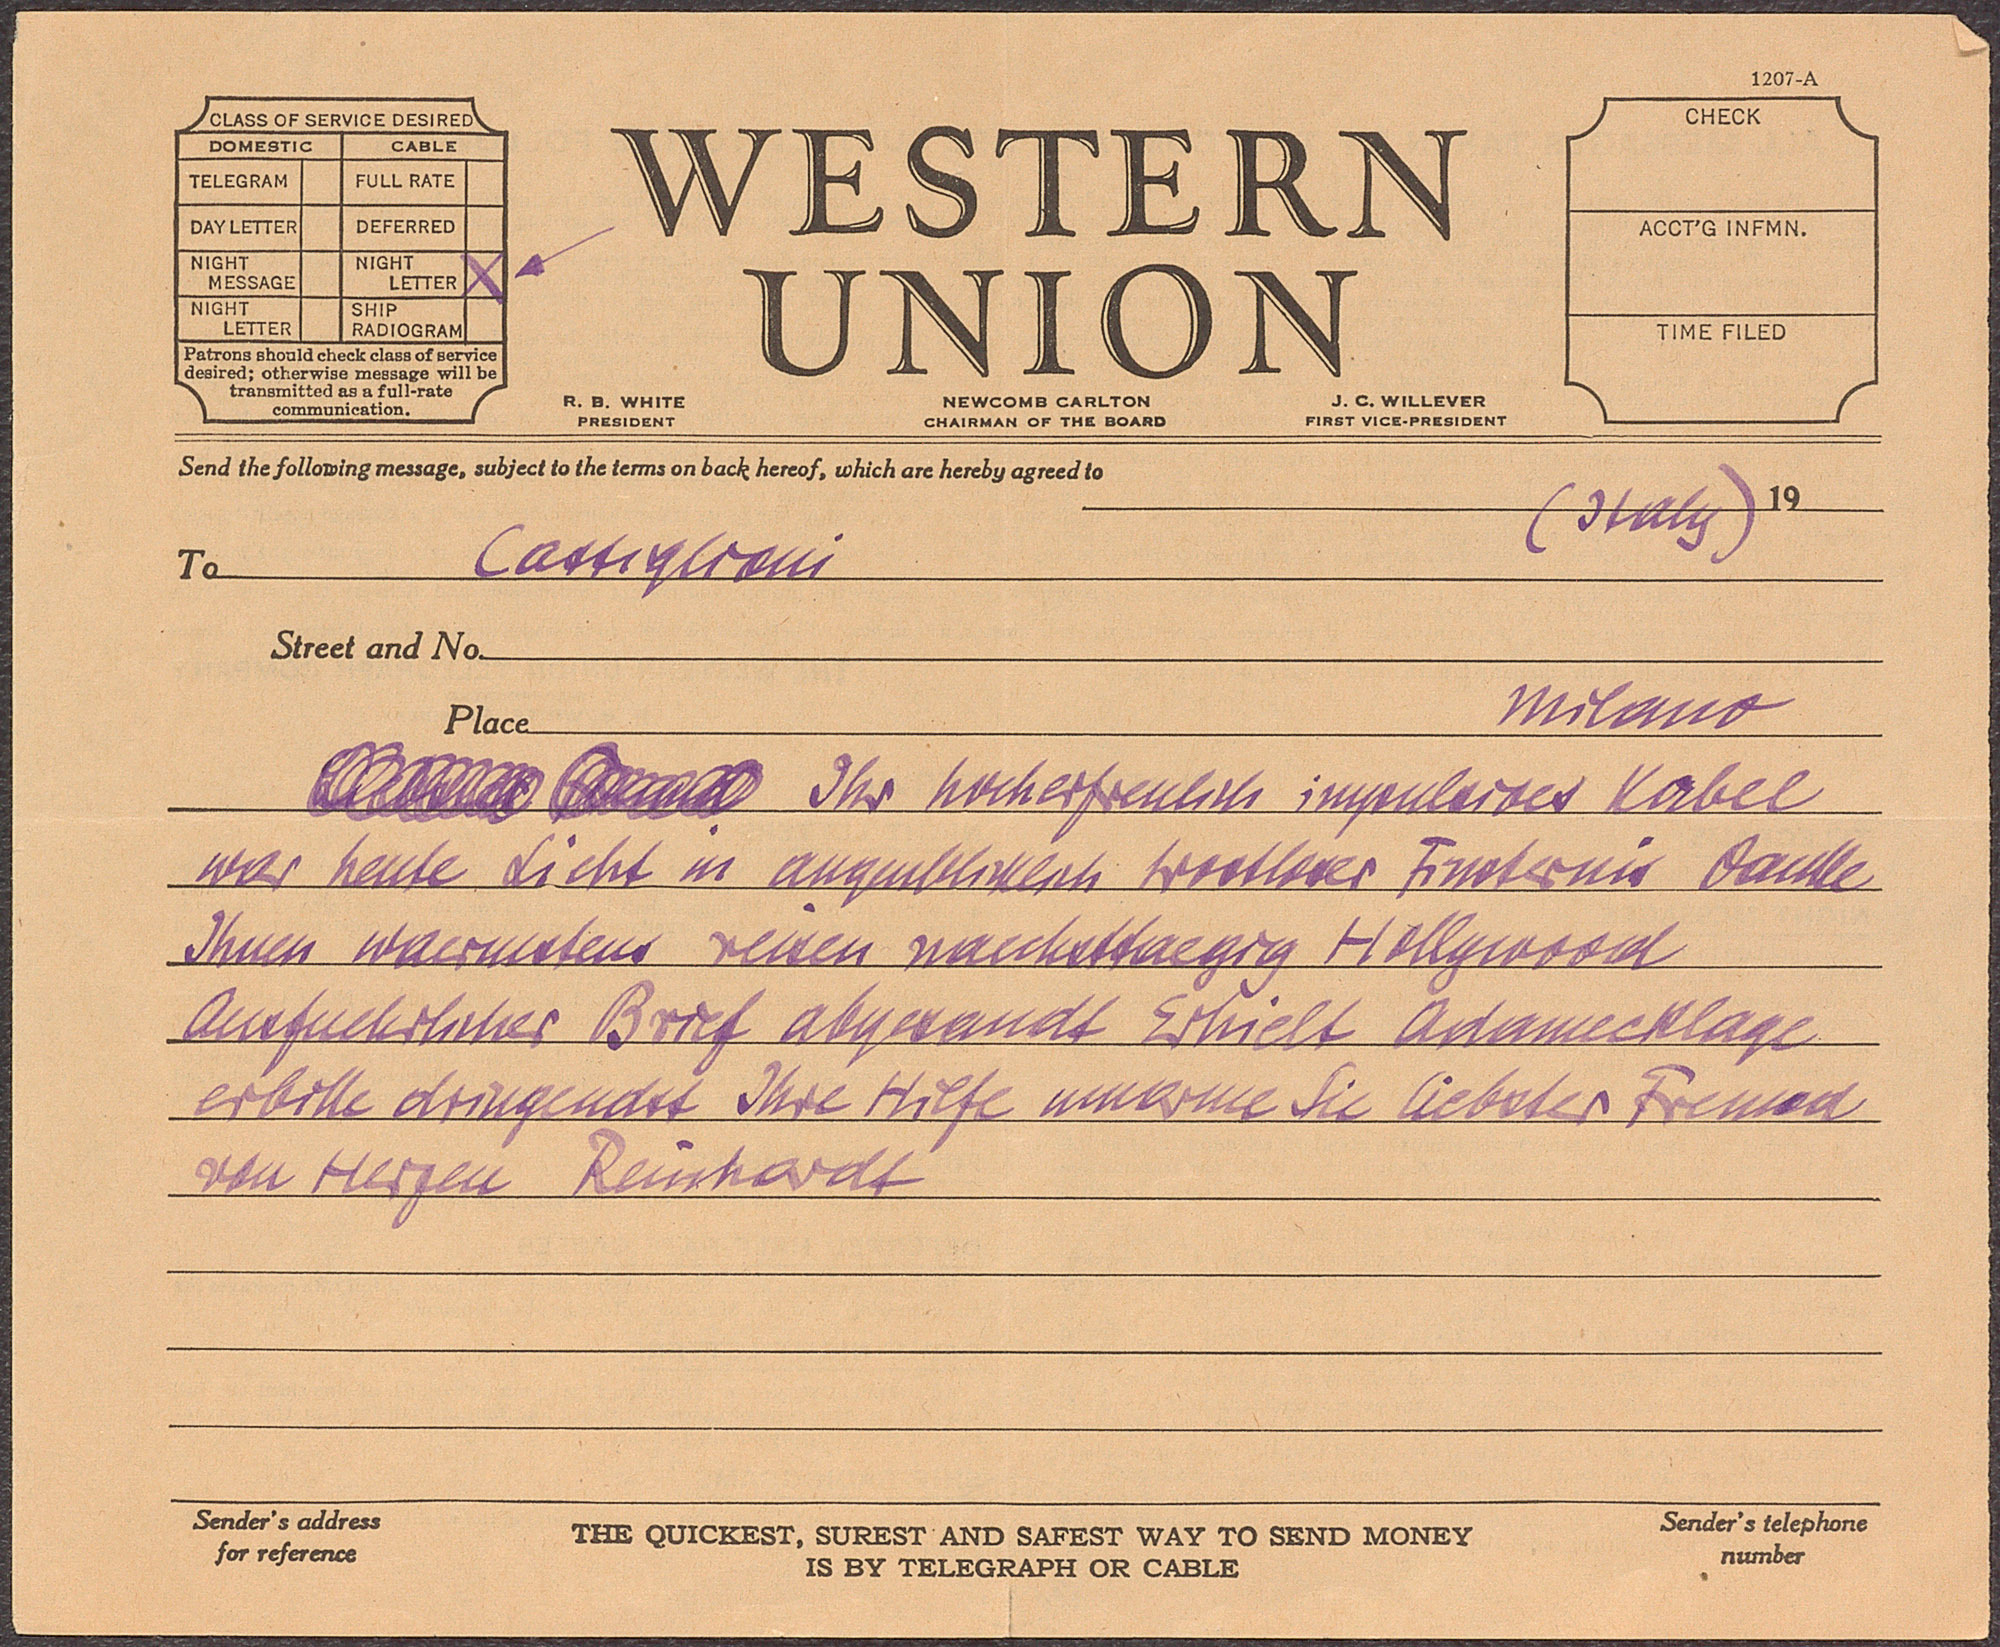 1207-A
CLASS OF SERVICE DESIRED
DOMESTIC CABLE
TELEGRAM FULL RATE
DAY LETTER DEFERRED
NIGHT MESSAGE NIGHT LETTER X
NIGHT LETTER SHIP RADIOGRAM
Patrons should check class of service
desired; otherwise message will be
transmitted as a full-rate
communication.
WESTERN
UNION
R. B. WHITE
PRESIDENT
NEWCOMB CARLTON
CHAIRMAN OF THE BOARD
J. C. WILLEVER
FIRST VICE-PRESIDENT
CHECK
ACCT'G INFMN.
TIME FILED
Send the following message, subject to the terms on back hereof, which are hereby agreed to
(Italy) 19
To Castiglioni
Street and No.
Place Milano
Ihr hocherfreulich impulsives Kabel
war heute Licht in augenblicklich trostloser Finsternis Danke
Ihnen waermstens reisen naechsttaegig Hollywood
Ausfuehrlicher Brief abgesandt Erhielt Adamecklage
erbitte dringendst Ihre Hilfe umarme Sie liebster Freund
von Herzen Reinhardt
Sender's address
for reference
THE QUICKEST, SUREST AND SAFEST WAY TO SEND MONEY
IS BY TELEGRAPH OR CABLE
Sender's telephone
number